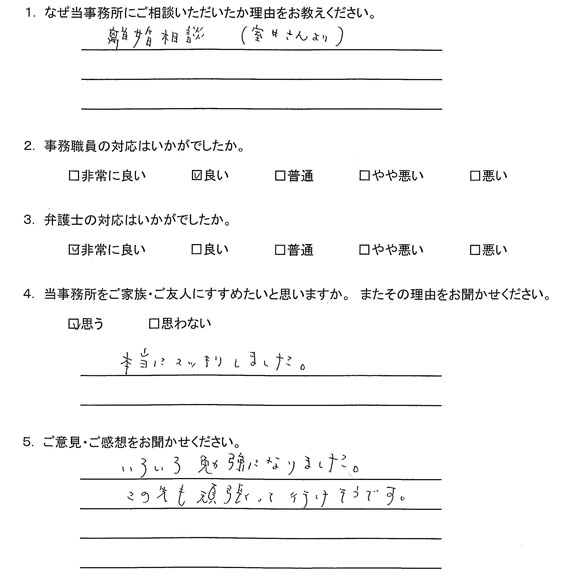 1. なぜ当事務所にご相談いただいたか理由をお教えください。
離婚相談 (室井さんより)
2. 事務職員の対応はいかがでしたか。
□非常に良い ☑良い □普通 □やや悪い □悪い
3. 弁護士の対応はいかがでしたか。
☑非常に良い □良い □普通 □やや悪い □悪い
4. 当事務所をご家族・ご友人にすすめたいと思いますか。 またその理由をお聞かせください。
☑思う □思わない
本当にスッキリしました。
5. ご意見・ご感想をお聞かせください。
いろいろ勉強になりました。
この先も頑張って行けそうです。